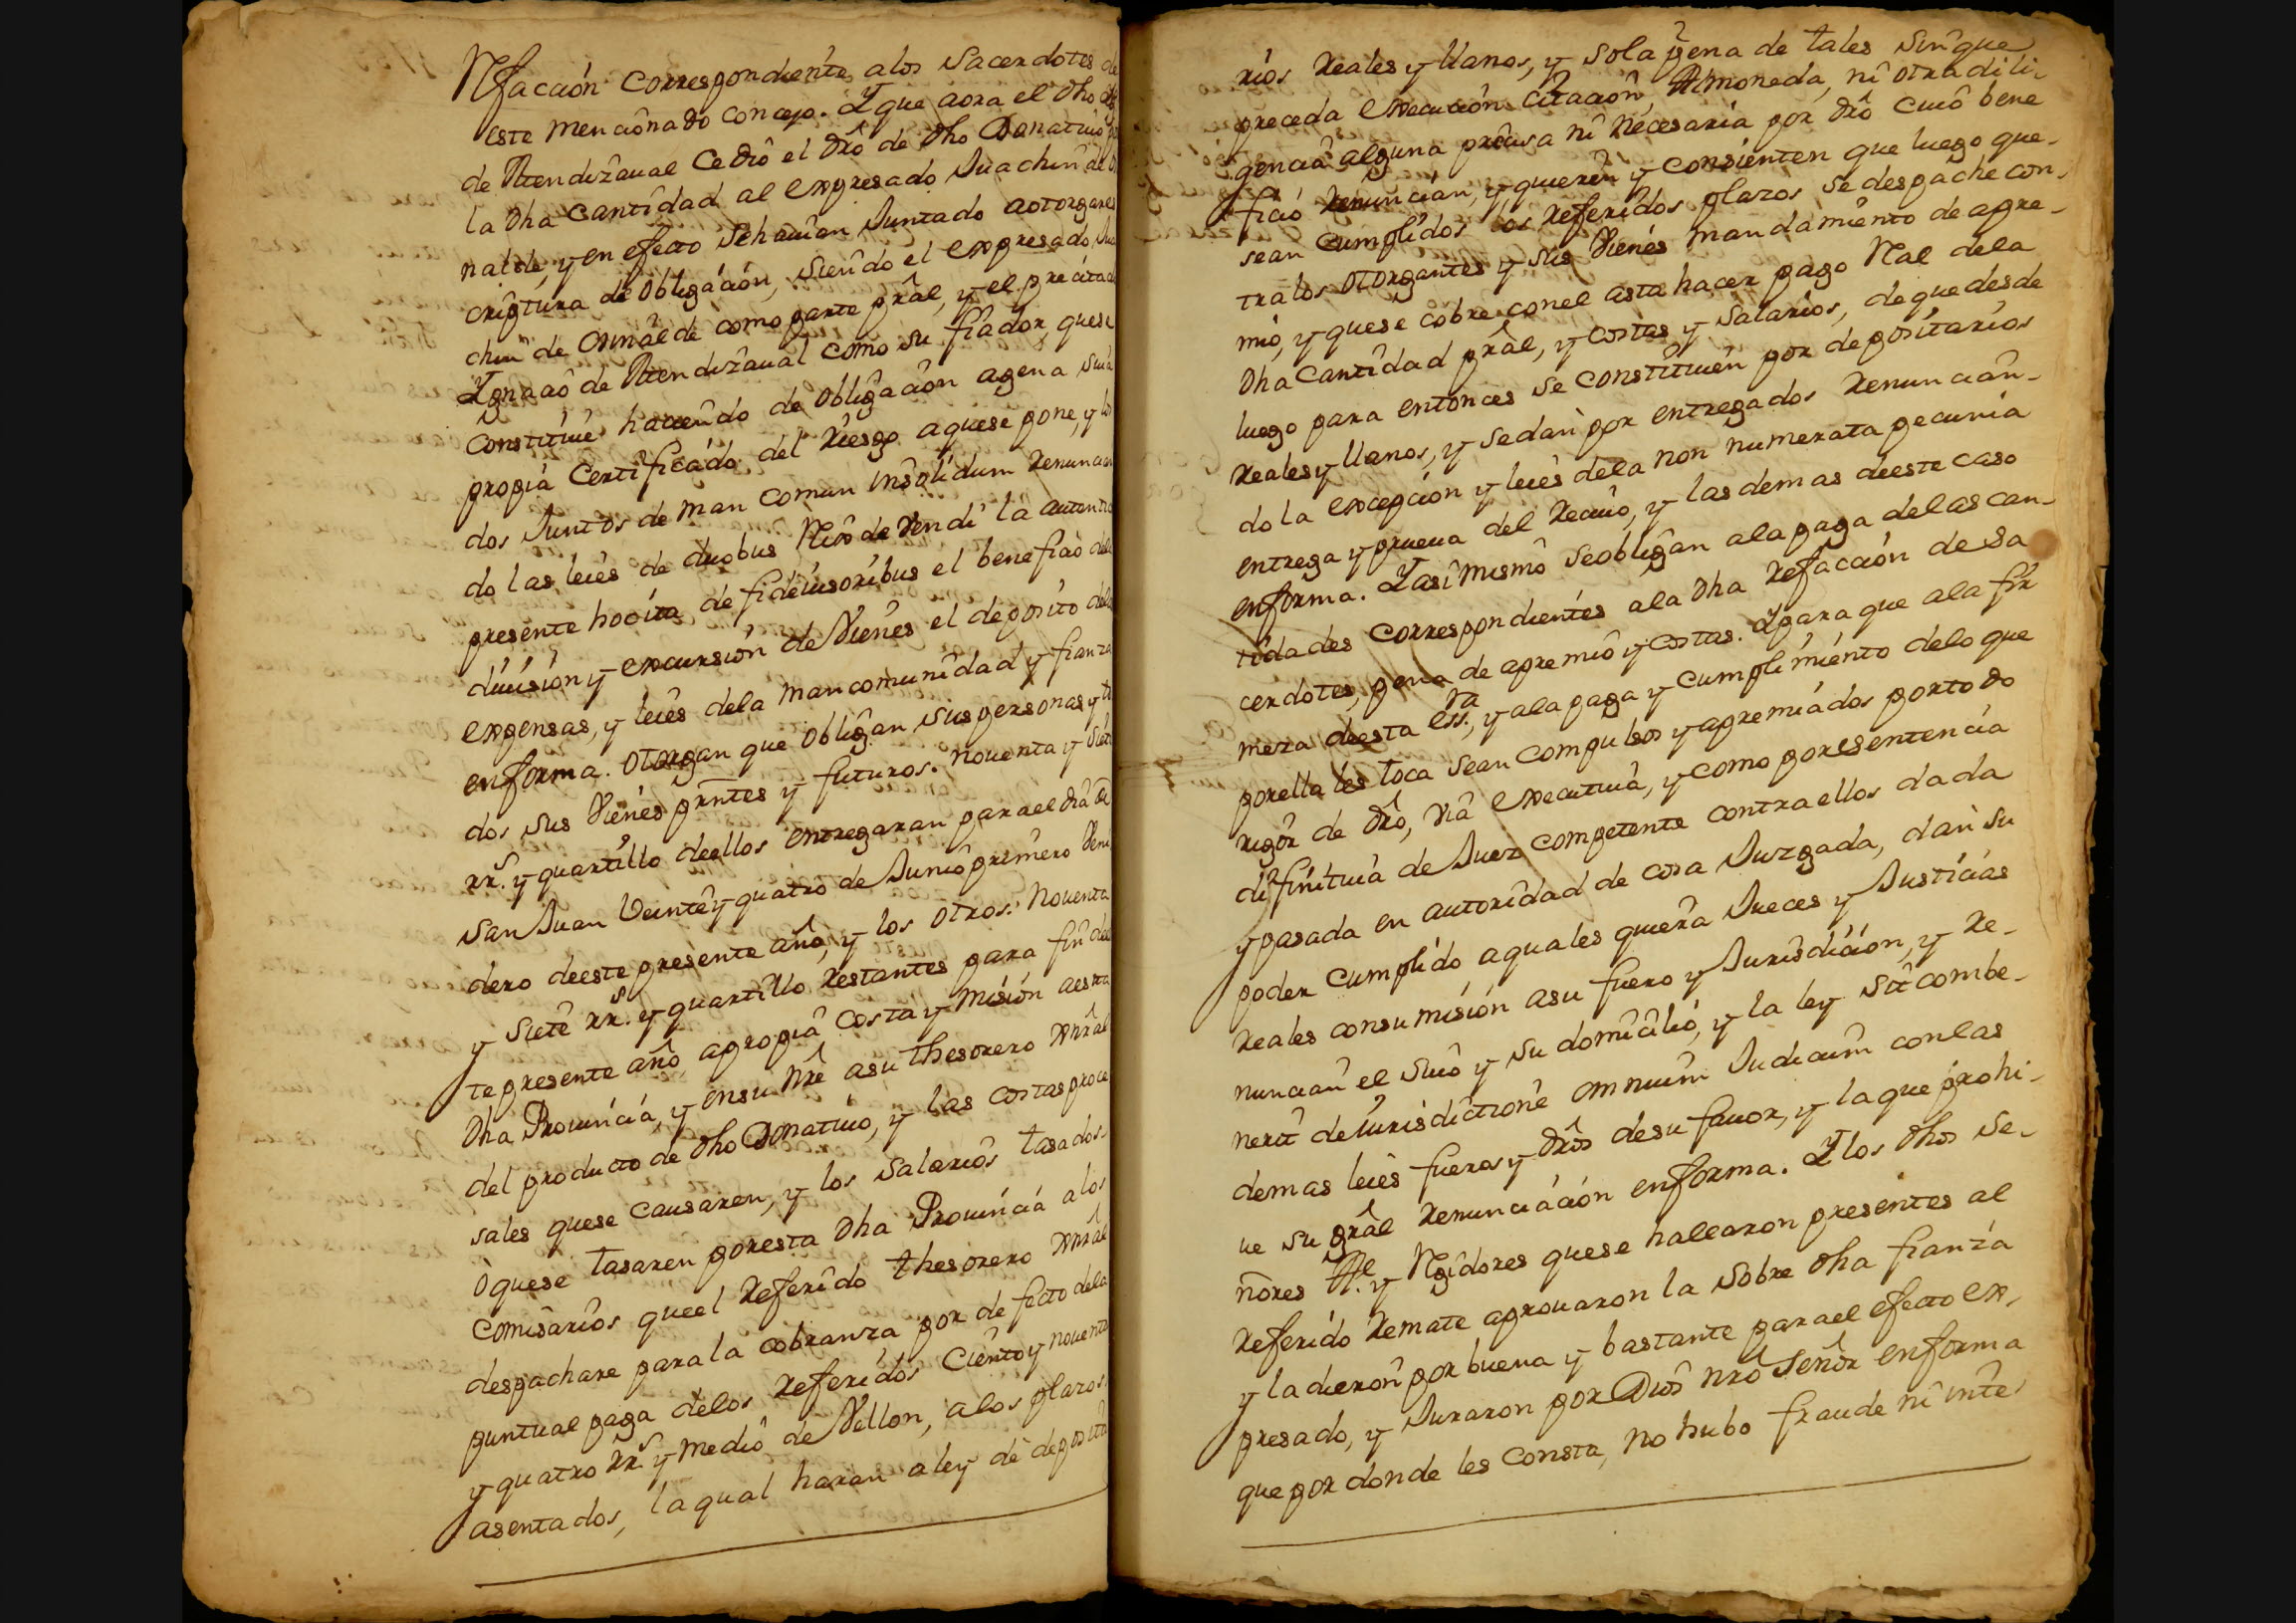 Refacción correspondiente alos sacerdotes de
este mencionado concejo. Y que aora el dho
de Mendizaual cedió el dro de dho Donatiuo
la dha cantidad al expresado Juachin de
nalde, y en efecto sehauian Juntado aotorgar es
criptura de obligación, siendo el expresado Jua
chin de Ornalde como parte prâl, y el precitado
Ygnacio de Mendizaual como su fiador, quese
constituié haciendo de obligación agena suia
propia certificado del riesgo aquese pone, y los
dos Juntos de man comun insolidum renuncian
do las leies de duobus Reis de vendi la autentica
presente hocita de fideiusoribus el beneficio dela
diuisión y excursión de Vienes el deposito delas
expensas, y leies dela mancomunidad y fianza
enforma. Otorgan que obligan suspersonas y to
dos sus Vienes prntes y futuros. nouenta y siete
rr.s y quartillo deellos entregaran parael dia de
San Juan Veintey quatro de Junio primero Veni
dero deeste presente año, y los otros. nouenta
y siete rr.s y quartillo restantes para fin dees
te presente año, apropia costa y misión aesta
dha Prouincia, y ensu nrê asu thesorero xnrâl
del producto de dho Donatiuo, y las costas proce
sales quese causaren, y los salarios tasados.
òquese tasaren poresta dha Prouincia alos
comisarios queel referido thesorero xnrâl
despachare parala cobranza por defecto dela
puntual paga delos referidos ciento y nouenta
y quatro rr.s y medio de Vellon, alos plazos
asentados, laqual haran aley de deposita
rios reales y llanos, y sola pena de tales sin que
preceda execución citación, Almoneda, ni otra dili-
gencia alguna precisa ni necesaria por drô cuio bene
ficio renuncian, y quieren y consienten que luego que-
sean cumplidos los referidos plazos se despache con-
tralos otorgantes y sus Vienes mandamiento de apre-
mio, y quese cobre conel asta hacer pago Real dela
dha cantidad prâl, y costas y salarios, deque desde
luego para entonces se constituien por depositarios
reales y llanos, y sedan por entregados renuncian-
do la excepción y leies dela non numerata pecunia
entrega y prueua del reciuo, y las demas deeste caso
enforma. Y asi mismo seobligan ala paga delas can-
tidades correspondientes ala dha refacción de sa
cerdotes, pena de apremio y costas. Y para que ala fir
meza deesta ess.ra, y ala paga y cumplimiento delo que
porella les toca sean compulsos y apremiados portodo
rigor de drô, via executiua, y como poresentencia
difinitiua de Juez competente contra ellos dada
y pasada en autoridad de cosa Juzgada, dan su
poder cumplido aquales quiera Jueces y Justicias
reales consumisión asu fuero y Jurisdición, y re-
nuncian el suio y su domicilio, y la ley sit combe-
nerit deiurisdictione omnium Judicum conlas
demas leies fueros y drôs desu fauor, y la que prohi-
ue su grâl renunciación enforma. Y los dhos se-
ñores Al.e y Regidores quese hallaron presentes al
referido remate aprouaron la sobre dha fianza
y la dieron por buena y bastante parael efecto ex-
presado, y Juraron por Dios nrô señor enforma
que por donde les consta, no hubo fraude ni inte